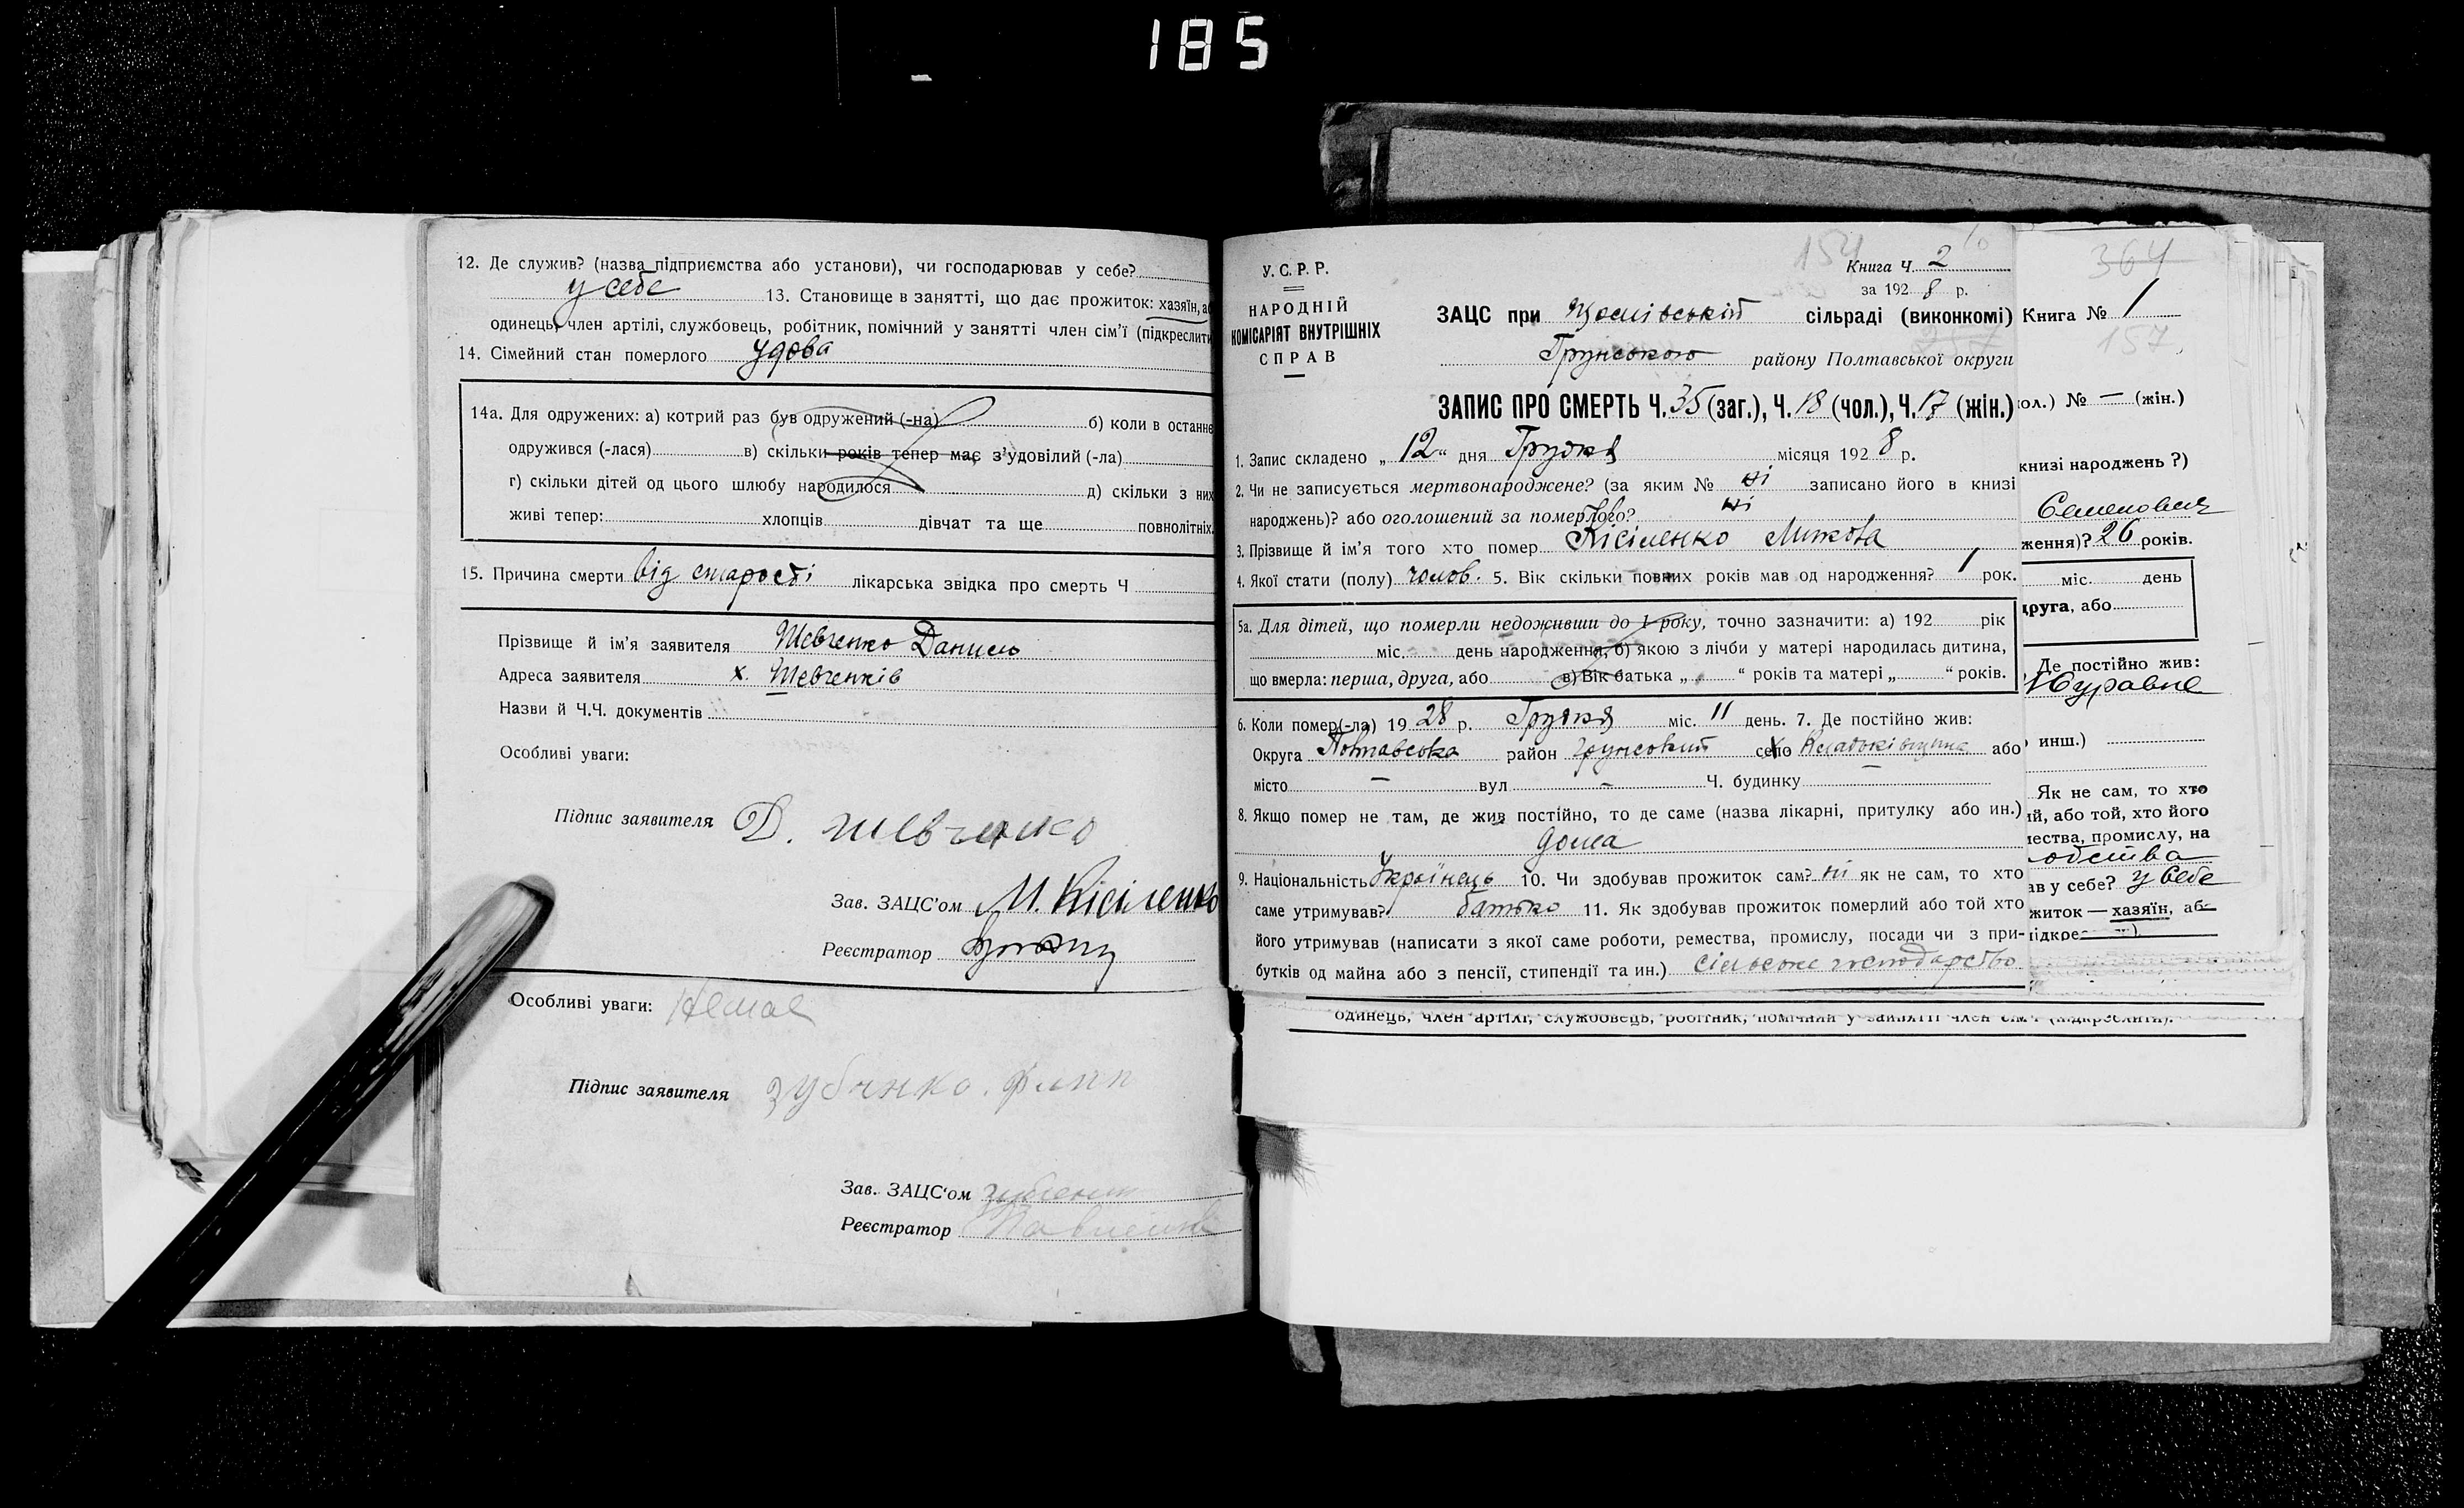 185
12. Де служив? (назва підприємства або установи), чи господарював у себе?
у себе 13. Становище в занятті, що дає прожиток: хазяїн, а
одинець, член артілі, службовець, робітник, помічний у занятті член сім'ї (підкреслити
14. Сімейний стан померлого удова
14а. Для одружених: а) котрий раз був одружений (-на) б) коли в останнє
одружився (-лася) в) скільки років тепер має з'удовілий (-ла)
г) скільки дітей од цього шлюбу народилося д) скільки з них
живі тепер: хлопців дівчат та ще повнолітніх.
15. Причина смерти від старості лікарська звідка про смерть Ч
Прізвище й ім'я заявителя Шевченко Данило
Адреса заявителя х. Шевченків
Назви й Ч.Ч. документів
Особливі уваги:
Підпис заявителя Д. Шевченко
Зав. ЗАЦС'ом М. Кісіленко
Реєстратор
Особливі уваги: Немає
Підпис заявителя Зубенко.
Зав. ЗАЦС'ом
Реєстратор
У.С.Р.Р.
НАРОДНІЙ
КОМІСАРІЯТ ВНУТРІШНІХ
СПРАВ
154
Книга Ч. 2
за 1928 р.
ЗАЦС при сільраді (виконкомі)
Грунського району Полтавської округи
ЗАПИС ПРО СМЕРТЬ Ч. 35 (заг.), Ч. 18 (чол.), Ч. 17 (жін.)
1. Запис складено „12" дня Грудня місяця 1928 р.
2. Чи не записується мертвонароджене? (за яким № ні записано його в книзі
народжень)? або оголошений за померлого? ні
3. Прізвище й ім'я того хто помер Кісіленко Микола
4. Якої стати (полу) чолов. 5. Вік скільки повних років мав од народження? 1 рок.
5а. Для дітей, що померли недоживши до 1 року, точно зазначити: а) 192 рік
міс. день народження, б) якою з лічби у матері народилась дитина,
що вмерла: перша, друга, або в) Вік батька „ " років та матері „ " років.
6. Коли помер(-ла) 1928 р. Грудня міс. 11 день. 7. Де постійно жив:
Округа Полтавська район Грунський село або
місто — вул — Ч. будинку —
8. Якщо помер не там, де жив постійно, то де саме (назва лікарні, притулку або ин.)
дома
9. Національність Українець 10. Чи здобував прожиток сам? ні як не сам, то хто
саме утримував? батько 11. Як здобував прожиток померлий або той хто
його утримував (написати з якої саме роботи, ремества, промислу, посади чи з при-
бутків од майна або з пенсії, стипендії та ин.) сільське господарство
одинець, член артілі, службовець, робітник, помічний у занятті член сім'ї (підкреслити).
364
Книга № 1
157
ол.) № — (жін.)
книзі народжень ?)
Семенович
ження)? 26 років.
міс. день
друга, або
Де постійно жив:
инш.)
Як не сам, то хто
ій, або той, хто його
чества, промислу, на
ав у себе? у себе
житок — хазяїн, аб